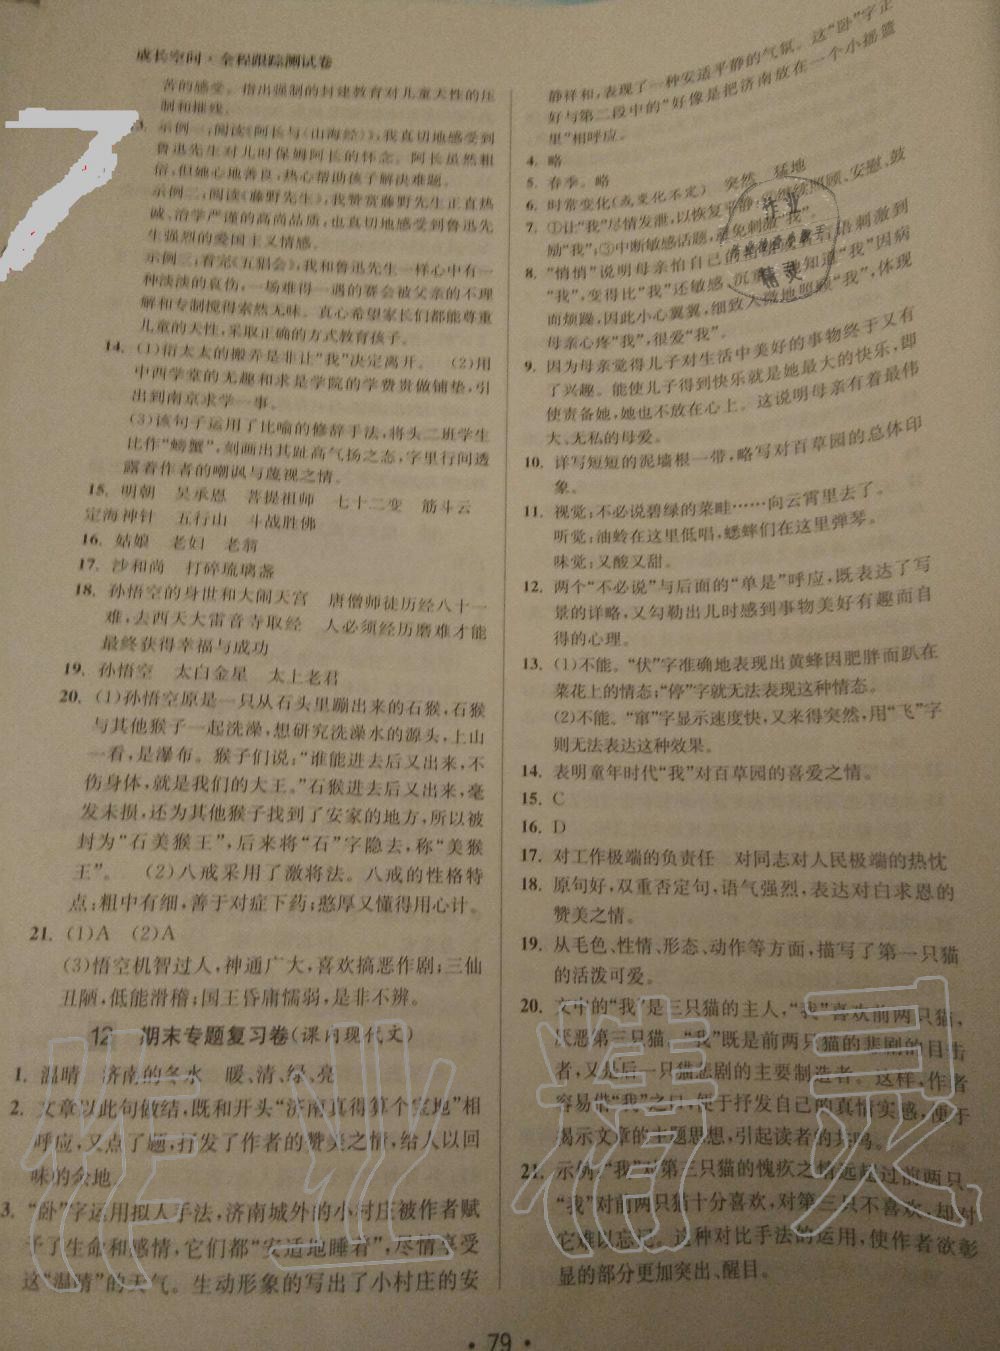 成长空间·全程跟踪测试卷
苦的感受。指出强制的封建教育对儿童天性的压
制和摧残。
3. 示例一:阅读《阿长与〈山海经〉》,我真切地感受到
鲁迅先生对儿时保姆阿长的怀念。阿长虽然粗
俗,但她心地善良,热心帮助孩子解决难题。
示例二:阅读《藤野先生》,我赞赏藤野先生正直热
诚、治学严谨的高尚品质,也真切地感受到鲁迅先
生强烈的爱国主义情感。
示例三:看完《五猖会》,我和鲁迅先生一样心中有
一种淡淡的哀伤,一场难得一遇的赛会被父亲的不理
解和专制搅得索然无味。真心希望家长们都能尊重
儿童的天性,采取正确的方式教育孩子。
14. (1)衍太太的搬弄是非让“我”决定离开。 (2)用
中西学堂的无趣和求是学院的学费贵做铺垫,引
出到南京求学一事。
(3)该句子运用了比喻的修辞手法,将头二班学生
比作“螃蟹”,刻画出其趾高气扬之态,字里行间透
露着作者的嘲讽与蔑视之情。
15. 明朝 吴承恩 菩提祖师 七十二变 筋斗云
定海神针 五行山 斗战胜佛
16. 姑娘 老妇 老翁
17. 沙和尚 打碎琉璃盏
18. 孙悟空的身世和大闹天宫 唐僧师徒历经八十一
难,去西天大雷音寺取经 人必须经历磨难才能
最终获得幸福与成功
19. 孙悟空 太白金星 太上老君
20. (1)孙悟空原是一只从石头里蹦出来的石猴,石猴
与其他猴子一起洗澡,想研究洗澡水的源头,上山
一看,是瀑布。猴子们说:“谁能进去后又出来,不
伤身体,就是我们的大王。”石猴进去后又出来,毫
发未损,还为其他猴子找到了安家的地方,所以被
封为“石美猴王”,后来将“石”字隐去,称“美猴
王”。 (2)八戒采用了激将法。八戒的性格特
点:粗中有细,善于对症下药;憨厚又懂得用心计。
21. (1)A (2)A
(3)悟空机智过人,神通广大,喜欢搞恶作剧;三仙
丑陋,低能滑稽;国王昏庸懦弱,是非不辨。
12 期末专题复习卷(课内现代文)
1. 温晴 济南的冬水 暖、清、绿、亮
2. 文章以此句做结,既和开头“济南真得算个宝地”相
呼应,又点了题,抒发了作者的赞美之情,给人以回
味的余地
3. “卧”字运用拟人手法,济南城外的小村庄被作者赋
予了生命和感情,它们都“安适地睡着”,尽情享受
这“温晴”的天气。生动形象的写出了小村庄的安
静祥和,表现了一种安适平静的气氛。这“卧”字正
好与第二段中的“好像是把济南放在一个小摇篮
里”相呼应。
4. 略
5. 春季。略
6. 时常变化(或变化不定) 突然 猛地
7. ①让“我”尽情发泄,以恢复平静;②继续照顾、安慰、鼓
励“我”;③中断敏感话题,避免刺激“我”。
8. “悄悄”说明母亲怕自己的
话语刺激到
“我”,变得比“我”还敏感、沉重。她知道“我”因病
而烦躁,因此小心翼翼,细致入微地照顾“我”,体现
母亲心疼“我”,很爱“我”。
9. 因为母亲觉得儿子对生活中美好的事物终于又有
了兴趣。能使儿子得到快乐就是她最大的快乐,即
使责备她,她也不放在心上。这说明母亲有着最伟
大、无私的母爱。
10. 详写短短的泥墙根一带,略写对百草园的总体印
象。
11. 视觉:不必说碧绿的菜畦……向云霄里去了。
听觉:油蛉在这里低唱,蟋蟀们在这里弹琴。
味觉:又酸又甜。
12. 两个“不必说”与后面的“单是”呼应,既表达了写
景的详略,又勾勒出儿时感到事物美好有趣而自
得的心理。
13. (1)不能。“伏”字准确地表现出黄蜂因肥胖而趴在
菜花上的情态;“停”字就无法表现这种情态。
(2)不能。“窜”字显示速度快,又来得突然,用“飞”字
则无法表达这种效果。
14. 表明童年时代“我”对百草园的喜爱之情。
15. C
16. D
17. 对工作极端的负责任 对同志对人民极端的热忱
18. 原句好,双重否定句,语气强烈,表达对白求恩的
赞美之情。
19. 从毛色、性情、形态、动作等方面,描写了第一只猫
的活泼可爱。
20. 文中的“我”是三只猫的主人,“我”喜欢前两只猫,
厌恶第三只猫。“我”既是前两只猫的悲剧的目击
者,又是后一只猫悲剧的主要制造者。这样,作者
容易借“我”之口,便于抒发自己的真情实感,便于
揭示文章的主题思想,引起读者的共鸣。
21. 示例:“我”对第三只猫的愧疚之情远超过前两只,
“我”对前两只猫十分喜欢,对第三只不喜欢,却对
它难以忘记。这种对比手法的运用,使作者欲彰
显的部分更加突出、醒目。
作业
精灵
作业精灵
7
· 79 ·